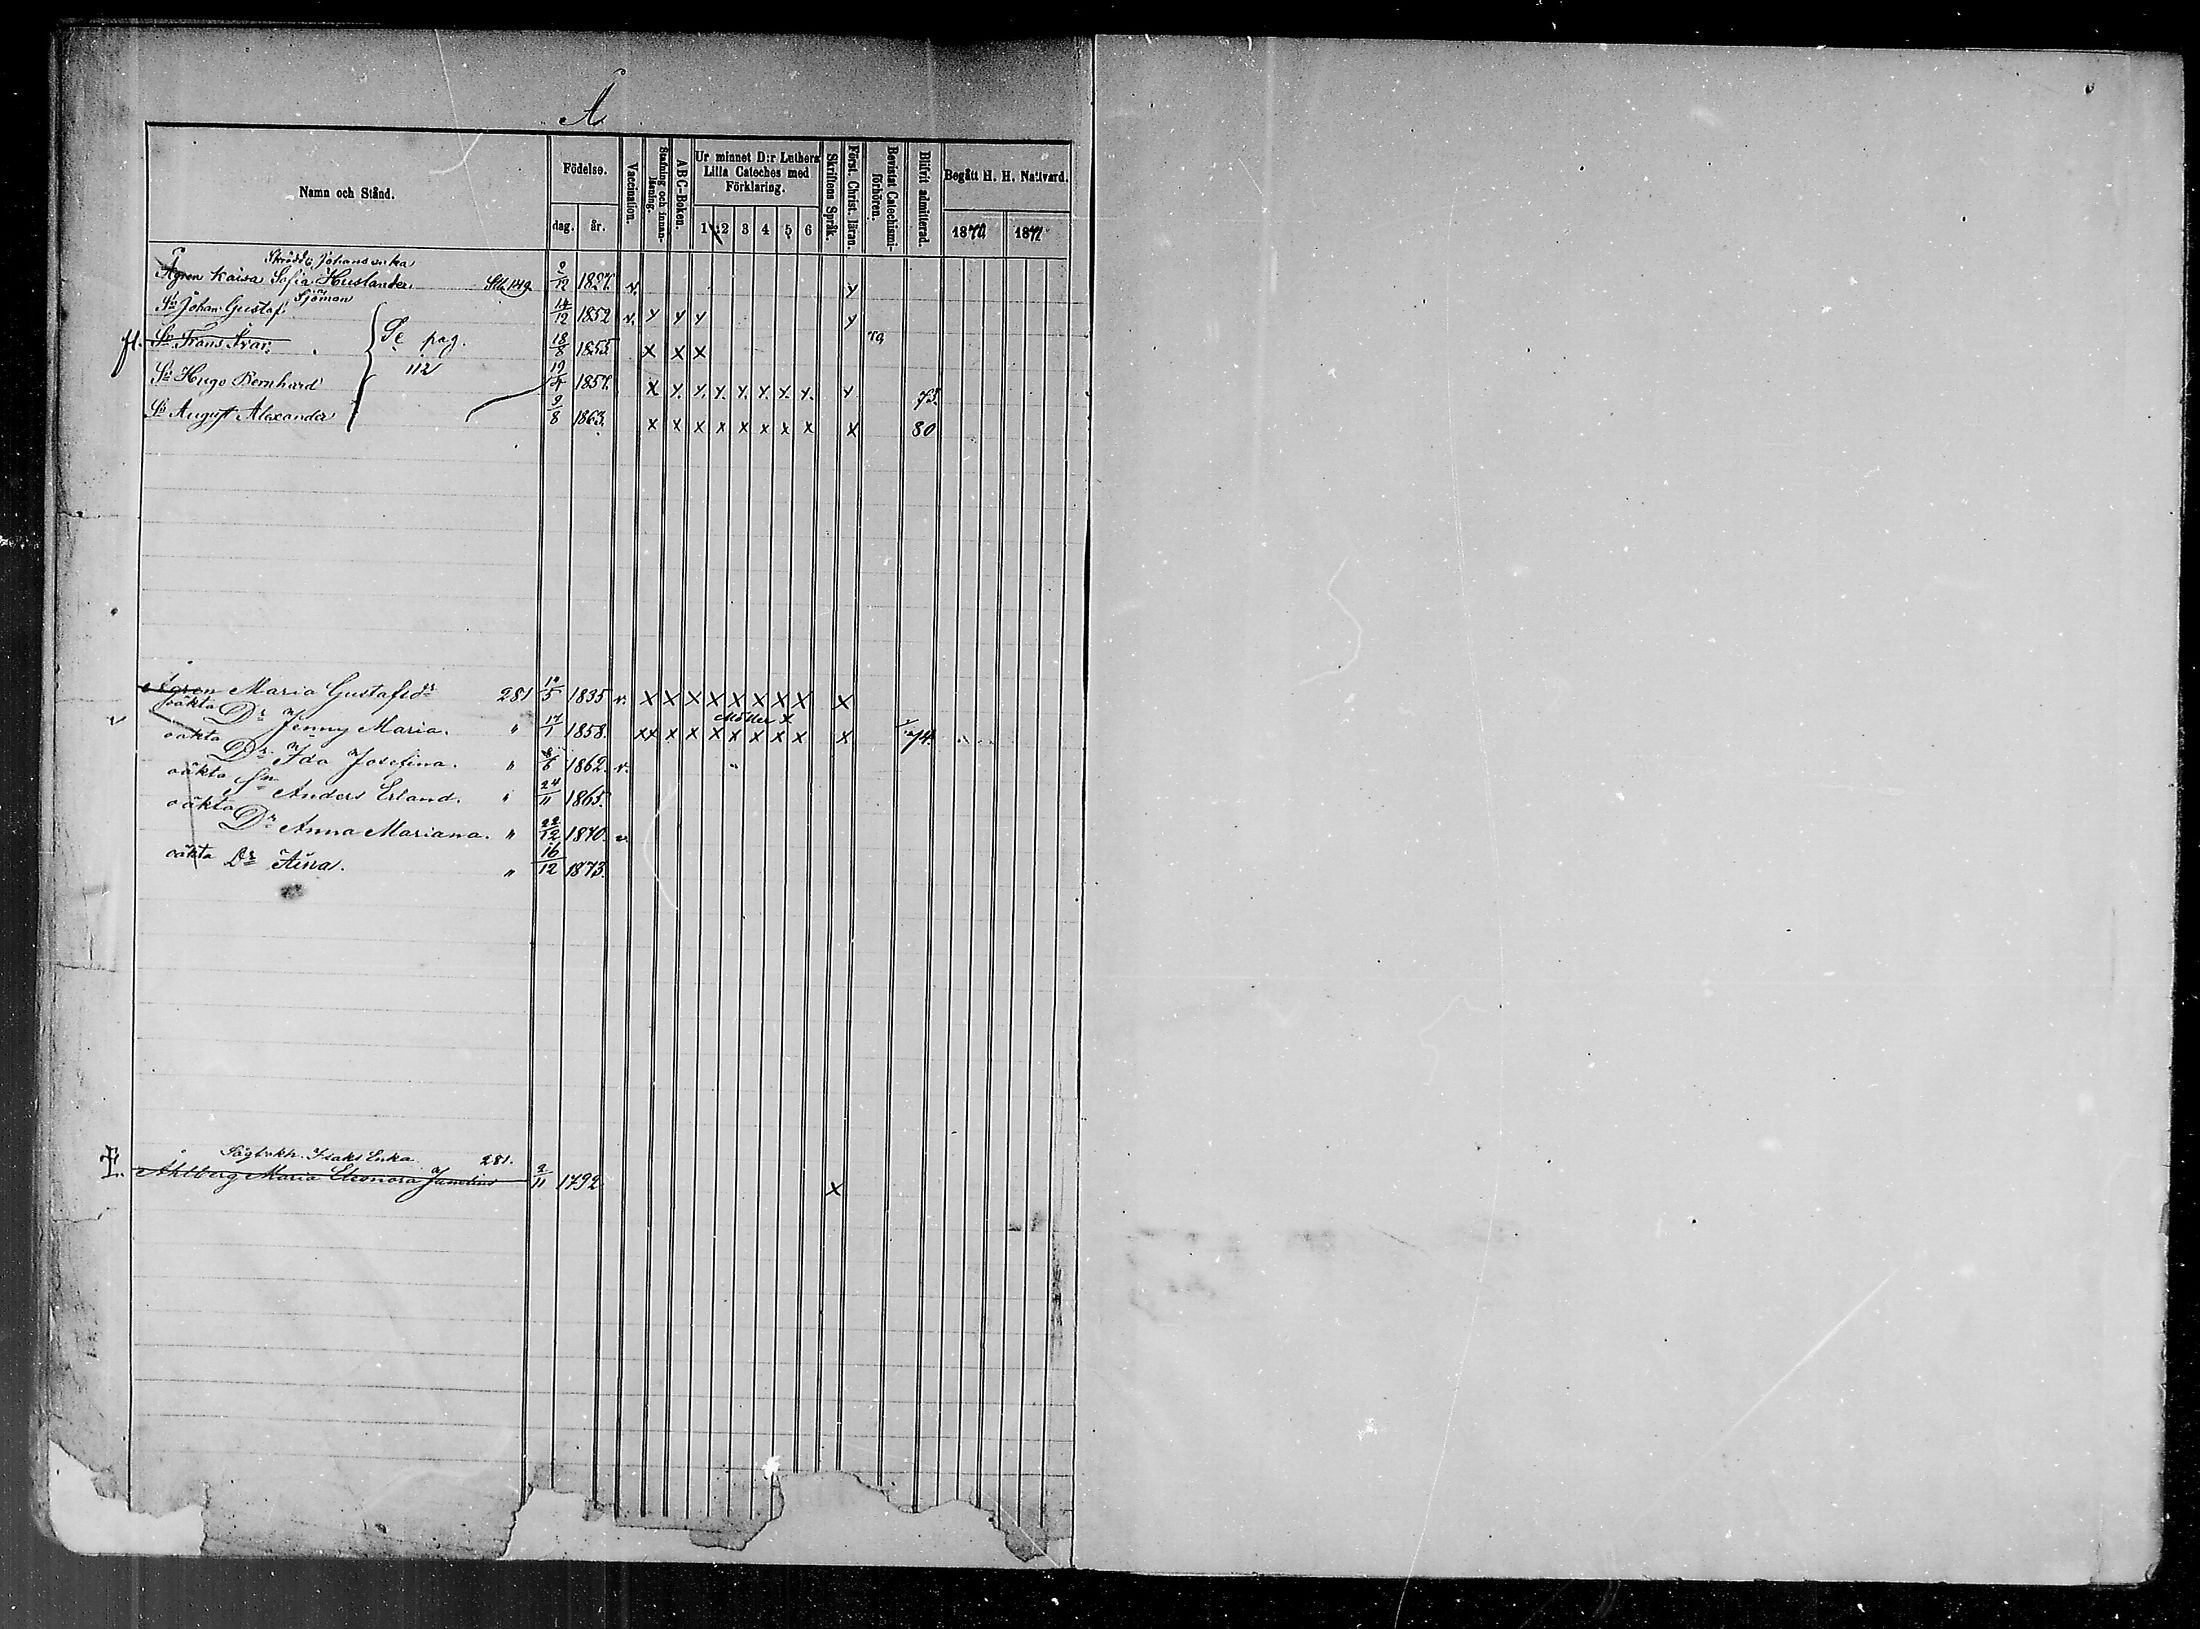 Å
Namn och Stånd. Födelse. dag. år. Vaccination. Stafning och innanläsning. ABC-Boken. Ur minnet D:r Luthers Lilla Cateches med Förklaring. 1 2 3 4 5 6 Skriftens Språk. Först. Christ. läran. Bevistat Catechismiförhören. Blifvit admitterad. Begått H. H. Nattvard. 1870 1871
Johans enka
Ågren Kaisa Sofia Huslander 149 9/12 1827. v. x
Sjöman
Sn Johan Gustaf 14/12 1852 v. x x x x
Sn Frans Ivar 18/8 1855 x x x
Se pag. 112
Sn Hugo Bernhard 19/4 1857. x x x x x x x x x 73.
Sn August Alexander 9/8 1863. x x x x x x x x x 80
Ågren Maria Gustafsdr 281 10/5 1835 v. x x x x x x x x x
Möller x
oäkta Dr Jenny Maria. " 17/1 1858. xx x x x x x x x x 74.
oäkta Dr Ida Josefina. " 8/6 1862. v.
oäkta Sn Anders Erland. " 24/11 1865.
oäkta Dr Anna Mariana. " 22/12 1870. v
oäkta Dr Aina. " 16/12 1873.
Isaks Enka 281.
Åhlberg Maria Eleonora 2/11 1792. x